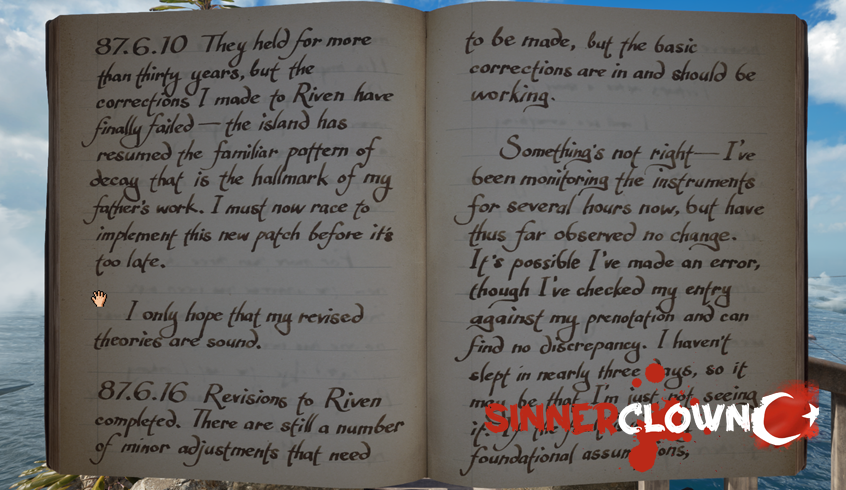 87.6.10 They held for more
than thirty years, but the
corrections I made to Riven have
finally failed — the island has
resumed the familiar pattern of
decay that is the hallmark of my
father's work. I must now race to
implement this new patch before it's
too late.
I only hope that my revised
theories are sound.
87.6.16 Revisions to Riven
completed. There are still a number
of minor adjustments that need
to be made, but the basic
corrections are in and should be
working.
Something's not right— I've
been monitoring the instruments
for several hours now, but have
thus far observed no change.
It's possible I've made an error,
though I've checked my entry
against my prenotation and can
find no discrepancy. I haven't
slept in nearly three days, so it
may be that I'm just not seeing
it.
foundational assumptions,
SINNERCLOWN